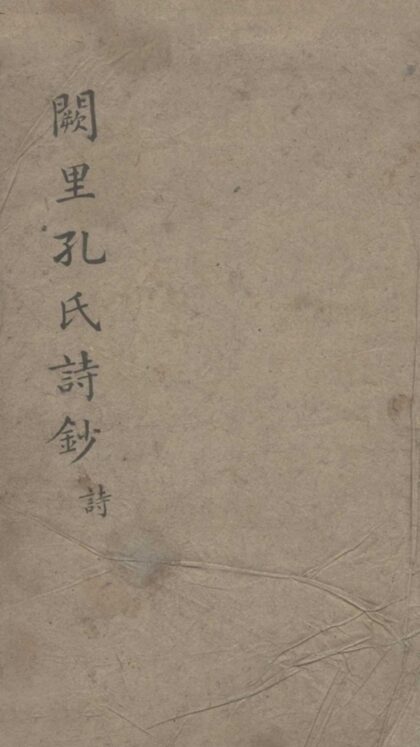 闕里孔氏詩鈔
詩